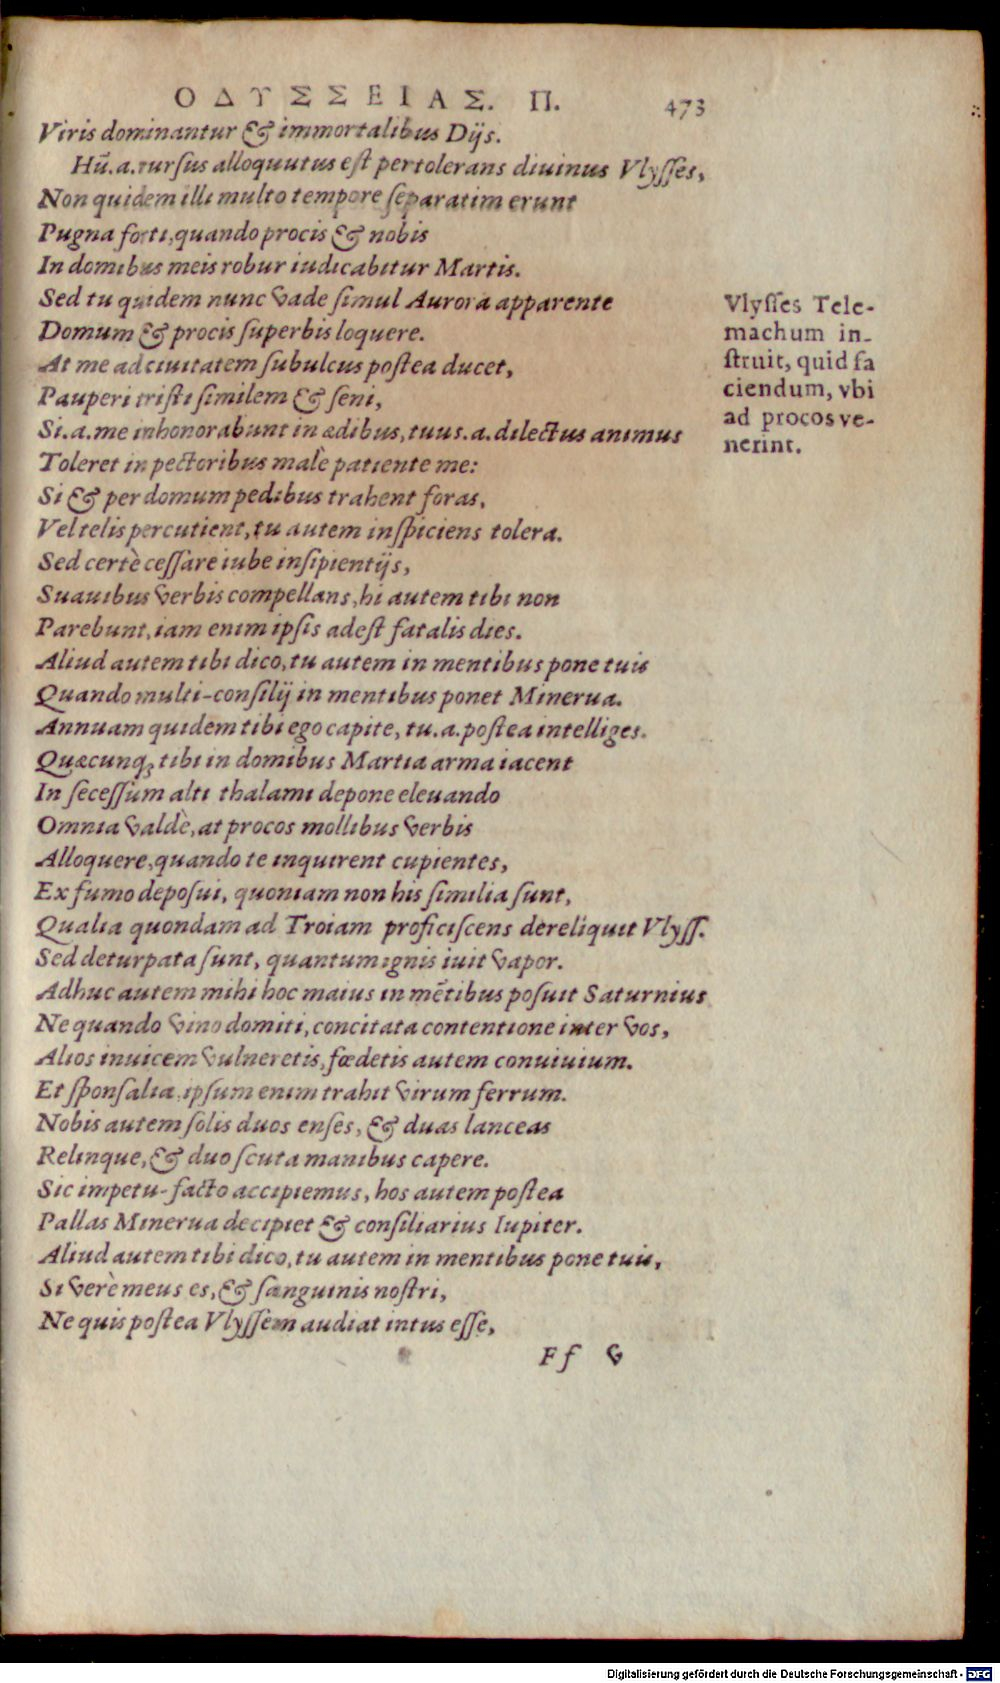 ΟΔΥΣΣΕΙΑΣ. Π. 473
Viris dominantur & immortalibus Dijs.
Hũ.a.rursus alloquutus est pertolerans diuinus Vlysses,
Non quidem illi multo tempore separatim erunt
Pugna forti, quando procis & nobis
In domibus meis robur iudicabitur Martis.
Sed tu quidem nunc vade simul Aurora apparente
Domum & procis superbis loquere.
At me ad ciuitatem subulcus postea ducet,
Pauperi tristi similem & seni,
Si.a.me inhonorabunt in ædibus, tuus.a.dilectus animus
Toleret in pectoribus malè patiente me:
Si & per domum pedibus trahent foras,
Vel telis percutient, tu autem inspiciens tolera.
Sed certè cessare iube insipientijs,
Suauibus verbis compellans, hi autem tibi non
Parebunt, iam enim ipsis adest fatalis dies.
Aliud autem tibi dico, tu autem in mentibus pone tuis
Quando multi-consilij in mentibus ponet Minerua.
Annuam quidem tibi ego capite, tu.a.postea intelliges.
Quæcunq; tibi in domibus Martia arma iacent
In secessum alti thalami depone eleuando
Omnia valdè, at procos mollibus verbis
Alloquere, quando te inquirent cupientes,
Ex fumo deposui, quoniam non his similia sunt,
Qualia quondam ad Troiam proficiscens dereliquit Vlyss.
Sed deturpata sunt, quantum ignis iuit vapor.
Adhuc autem mihi hoc maius in mẽtibus posuit Saturnius
Ne quando vino domiti, concitata contentione inter vos,
Alios inuicem vulneretis, fœdetis autem conuiuium.
Et sponsalia, ipsum enim trahit virum ferrum.
Nobis autem solis duos enses, & duas lanceas
Relinque, & duo scuta manibus capere.
Sic impetu-facto accipiemus, hos autem postea
Pallas Minerua decipiet & consiliarius Iupiter.
Aliud autem tibi dico, tu autem in mentibus pone tuis,
Si verè meus es, & sanguinis nostri,
Ne quis postea Vlyssem audiat intus esse,
Ff v
Vlysses Tele-
machum in-
struit, quid fa
ciendum, vbi
ad procos ve-
nerint.
Digitalisierung gefördert durch die Deutsche Forschungsgemeinschaft - DFG